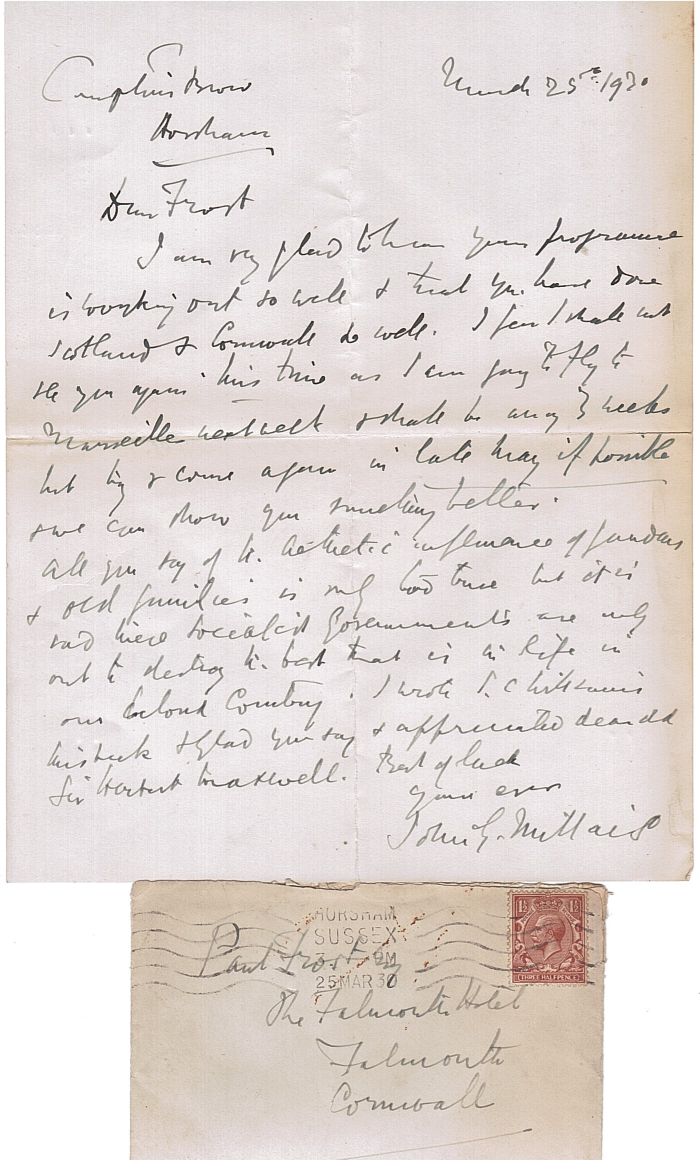 Comptons Brow
March 25th 1930
Horsham
Dear Frost
I am very glad to hear your programme
is working out so well & that you have done
Scotland & Cornwall so well. I fear I shall not
see you again this time as I am going to fly to
Marseille next week & shall be away 3 weeks
but try & come again in late May if possible
& we can show you something better.
All you say of the aesthetic influence of gardens
& old families is only too true but it is
sad these Socialist Governments are only
out to destroy the best that is in life in
our beloved Country. I wrote
this week & glad you saw & appreciated dear old
Sir Herbert Maxwell. Best of luck
yours ever
John G. Millais
HORSHAM
SUSSEX
PM
25 MAR 30
1½ 1½
THREE HALFPENCE
Paul Frost Esq
The Falmouth Hotel
Falmouth
Cornwall